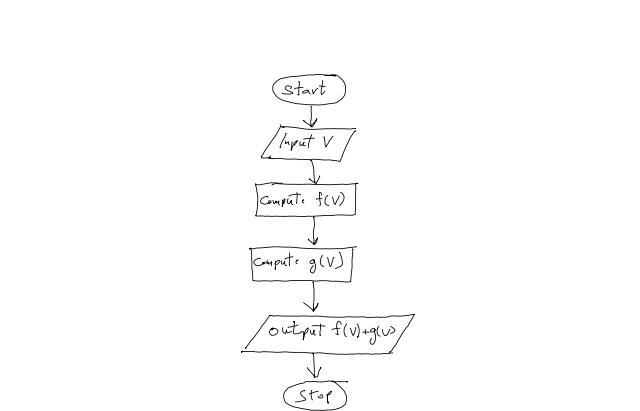 Start
Input V
Compute f(V)
Compute g(V)
output f(V)+g(V)
Stop